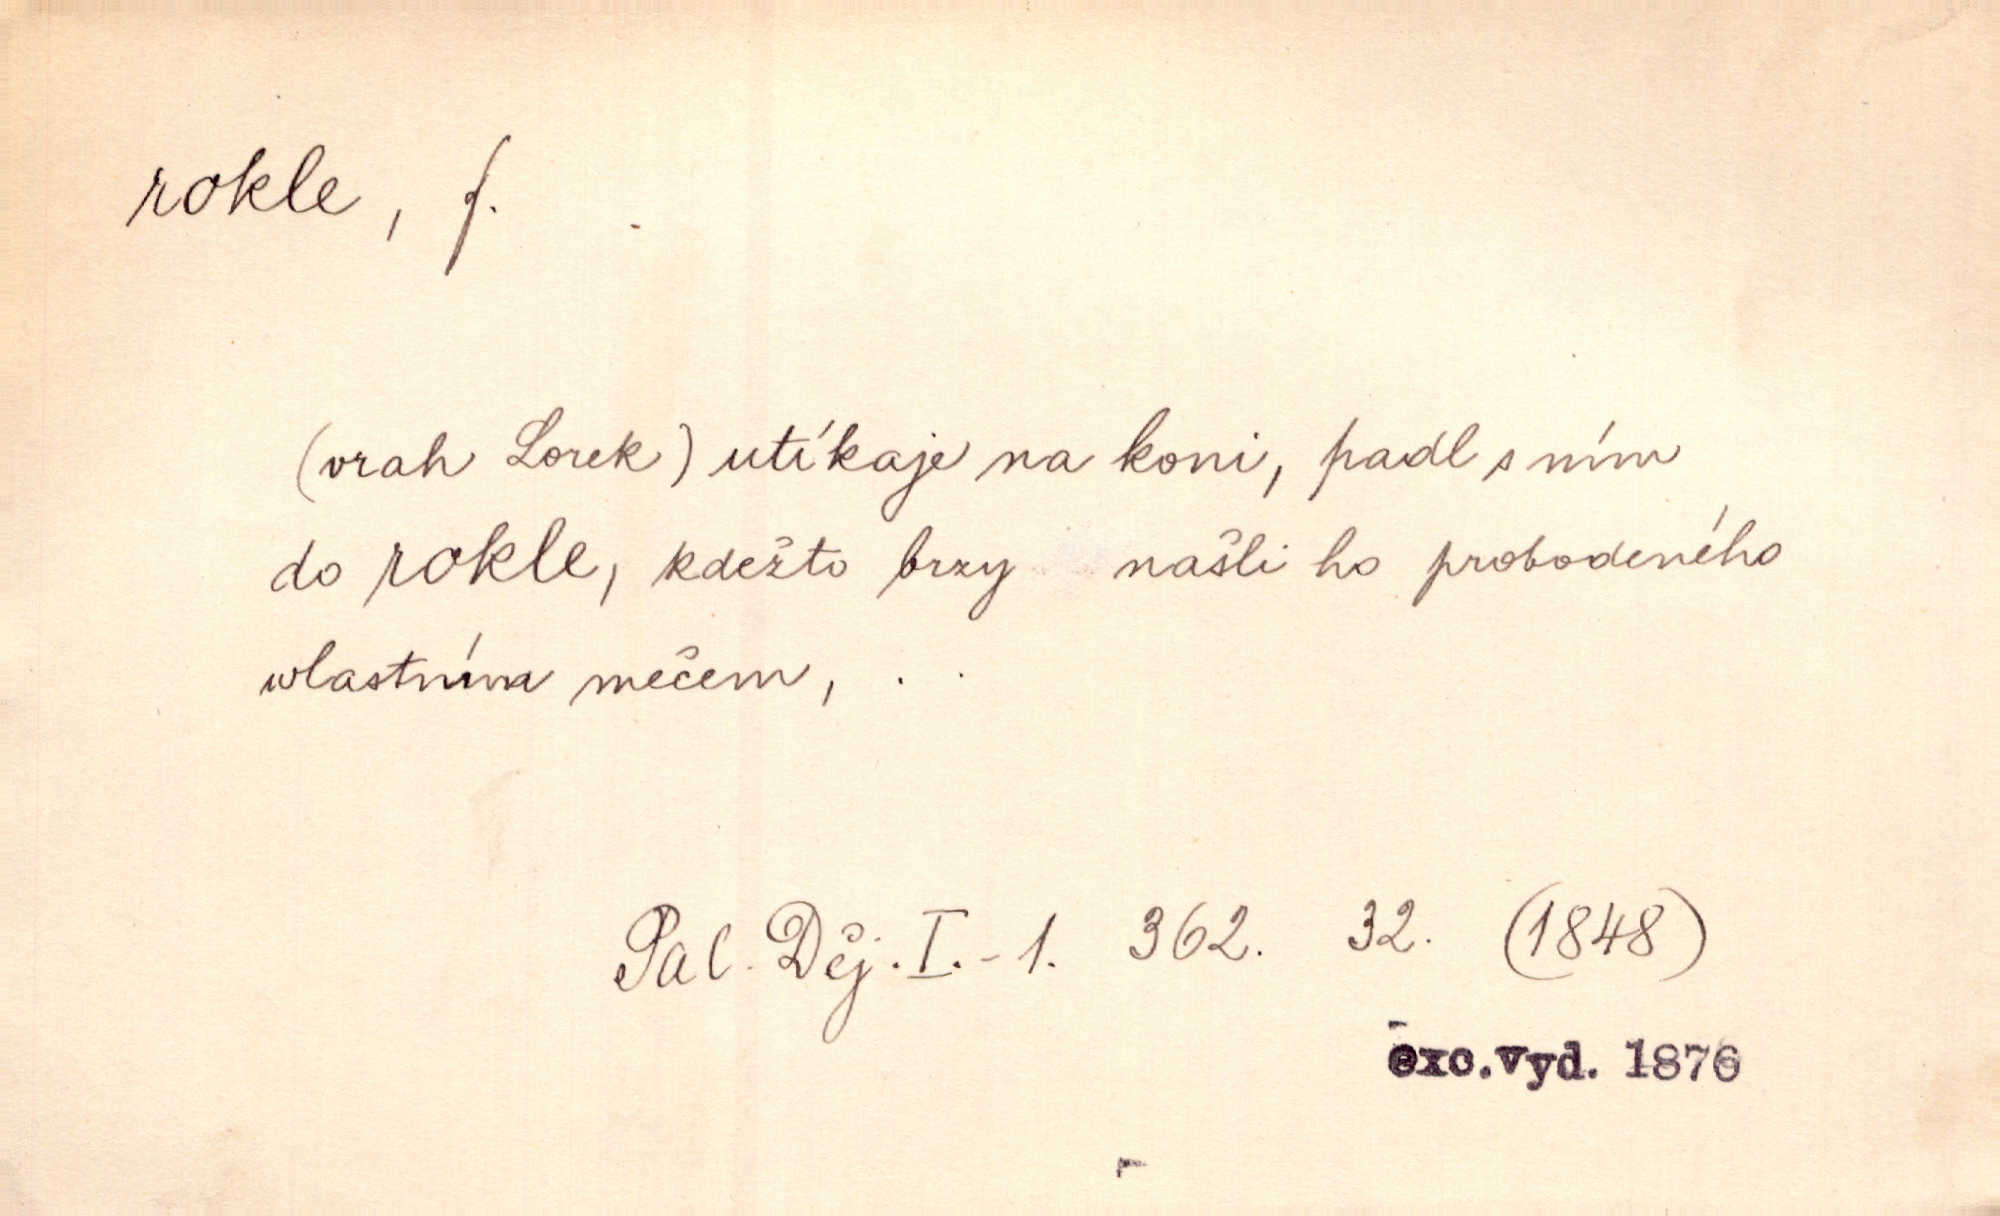 rokle, f.
(vrah Lorek) utíkaje na koni, padl s ním
do rokle, kdežto brzy našli ho probodeného
wlastním mečem, . .
Pal. Děj. I.-1. 362. 32. (1848)
exc.vyd. 1876